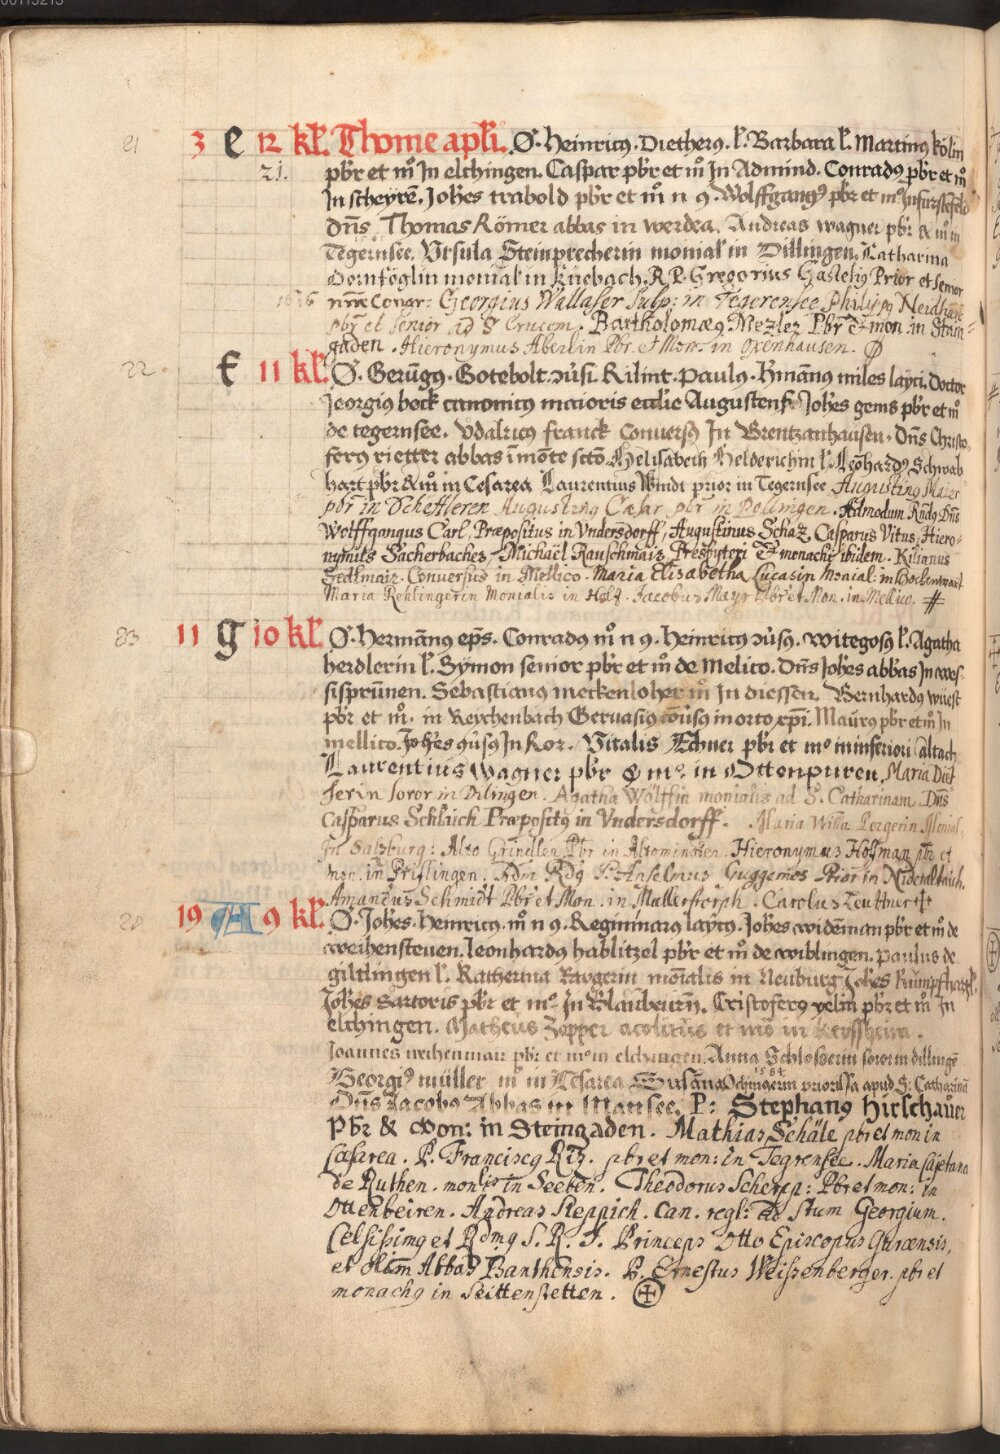 00113215
21 3 e 12 kł. Thome apłi. Ø. Heinricꝰ. Dietherꝰ. ł. Barbara ł. Martinꝰ kölin
21. pbr̄ et m̊ Jn elchingen. Caspar pbr̄ et m̊ Jn Admind. Conradꝰ pbr̄ et m̊
Jn scheyrē. Joh̄es trabold pbr̄ et m̊ n 9. Wolffgangꝰ pbr̄ et m̊ Jn furstēfeld
dn̄s Thomas Römer abbas in werdea. Andreas wagner pbr̄ & m̊ in
Tegernsee. Vrsula Steinprecherin monial̄ in Dillingen. Catharina
Dornföglin monial in Küebach. R. P. Gregorius Gastelig Prior et Senior
1676 nr̄æ Congr: Georgius Wallaser Subp: in Tegerensee Philippꝰ Neidhart
pbr̄ et senior ad S Crucem. Bartholomæꝰ Mezler Pbr̄ & mon. in Stain=
gaden. Hieronymus Aberlin Pbr. et Mon. in oxenhausen.
22. f 11 kł. Ø. Gerūgꝰ. Gotebolt. ꝯūsi. Rilint. Paulꝰ. Hmānꝰ miles layci. Doctor
Jeorgiꝰ bock canonicꝰ maioris eccl̄ie Augustens̄. Joh̄es gems pbr̄ et m̊
de tegernsee. Vdalricꝰ franck Conversꝰ Jn Brentzanhausen. Dn̄s Christo
ferꝰ rietter abbas ī mōte sctō. Helisabeth Helderichin ł. Leōhardꝰ Schwab
hart pbr̄ & m̊ in Cesarea Laurentius Windt prior in Tegernsee Augustinꝰ Maier
pbr̄ in Scheftleren Augustinꝰ Cæsar pbr̄ in Pollingen. Admodum Rndꝰ Dn̄s
Wolffgangus Carl, Præpositus in Vndersdorff, Augustinus Schaz, Casparus Vitus, Hiero=
nymus Sacherbacher, Michaël Rauschmair, Presbyteri & monachi ibidem. Kilianus
Sedlmair. Conversus in Mellico. Maria Elisabetha Lucasin Monial: in Hochenwart
Maria Rehlingerin Monialis in Holz. Jacobus Mayr Pbr et Mon. in Mellico. #
23 11 g 10 kł. Ø. Hermānꝰ ep̄s. Conradꝰ m̊ n 9. Heinricꝰ ꝯūsꝰ. Witegosꝰ ł. Agatha
herdlerin ł. Symon senior pbr̄ et m̊ de Melico. Dn̄s Joh̄es abbas Jn wes=
sisprūnen. Sebastianꝰ meckenloher m̊ Jn diessen. Bernhardꝰ wüest
pbr̄ et m̊. in Reychenbach Gervasiꝰ ꝯūsꝰ in orto xpi. Maurꝰ pbr̄ et m̊ Jn
mellico. Joh̄es ꝯūsꝰ Jn Ror. Vitalis Echner pbr̄ et m̊ in inferiori altach
Laurentius wagner pbr̄ & m̊ in Ottenpuren. Maria Diet
ferin soror in Dilingen. Agatha Wölffin monialis ad S. Catharinam. Dn̄s
Casparus Schlüch Præpositꝰ in Vndersdorff. Maria Willa Pergerin Monial.
in Salzburg: Alto Grindler Pbr in Altominster. Hieronymus Hoffman pbr et
mon. in Prisslingen. Adm Rdꝰ P. Anselmus Guggemos Prior in Nidenaltaich.
Amandus Schmidt Pbr et Mon. in Mallerstorph. Carolus Zeuttner +
24 19 A 9 kł. Ø. Joh̄es. Heinricꝰ. m̊ n 9. Regimarꝰ laycꝰ. Joh̄es widēman pbr̄ et m̊ de
weihensteven. Leonhardꝰ hablitzel pbr̄ et m̊ de wiblingen. Paulus de
giltlingen ł. Katherina Raygerin mōialis in Neuburg Joh̄es Rumpfhart ł.
Joh̄es Sartoris pbr̄ et m̊ Jn Blaubeurn̄. Cristoferꝰ yelin pbr̄ et m̊ Jn
elchingen. Matheus Zopper acolitus et mō in Keyssheim.
Joannes weihenmair pbr̄ et m̊ in elchingen. Anna Schlosserin soror in dillingē
Georgiꝰ müller m̊ in Cesarea Susana Ochingerin priorissa apud S: Catharinā
1584
Dn̄s Jacobꝰ Abbas in Mansee. P: Stephanꝰ Hirschauer
Pbr̄ & Mon: in Steingaden. Mathias Schäle pbr et mon in
Cæsarea. P. Franciscꝰ Riz. pbr et mon: in Tegrensee. Maria Cajetana
de Ruthen. monlis in Seeben. Theodorus Scherer: Pbr et mon: in
Ottenbeiren. Andreas Steppich. Can. regl: ad Stum Georgium.
Celsissimꝰ et Rdmꝰ S. R. I. Princeps Otto Episcopus Gurcensis,
et olim Abbas Banthensis. P. Ernestus Weissenberger. pbr et
monachꝰ in Seittenstetten.